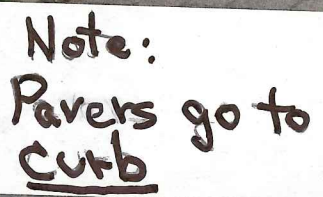 Note:
Pavers go to
Curb